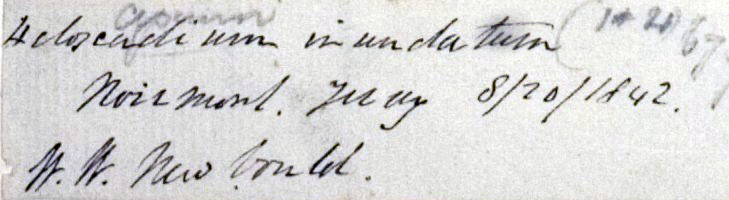 Helosciadium inundatum
Noirmont. Jersey 8/20/1842.
W. W. Newbould.